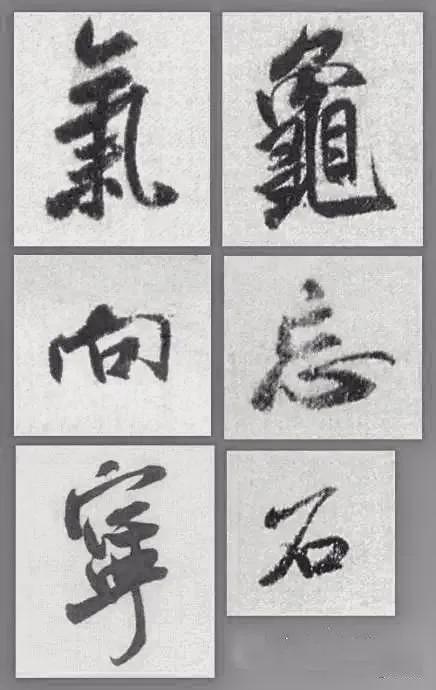 氣龜
向忘
寧石